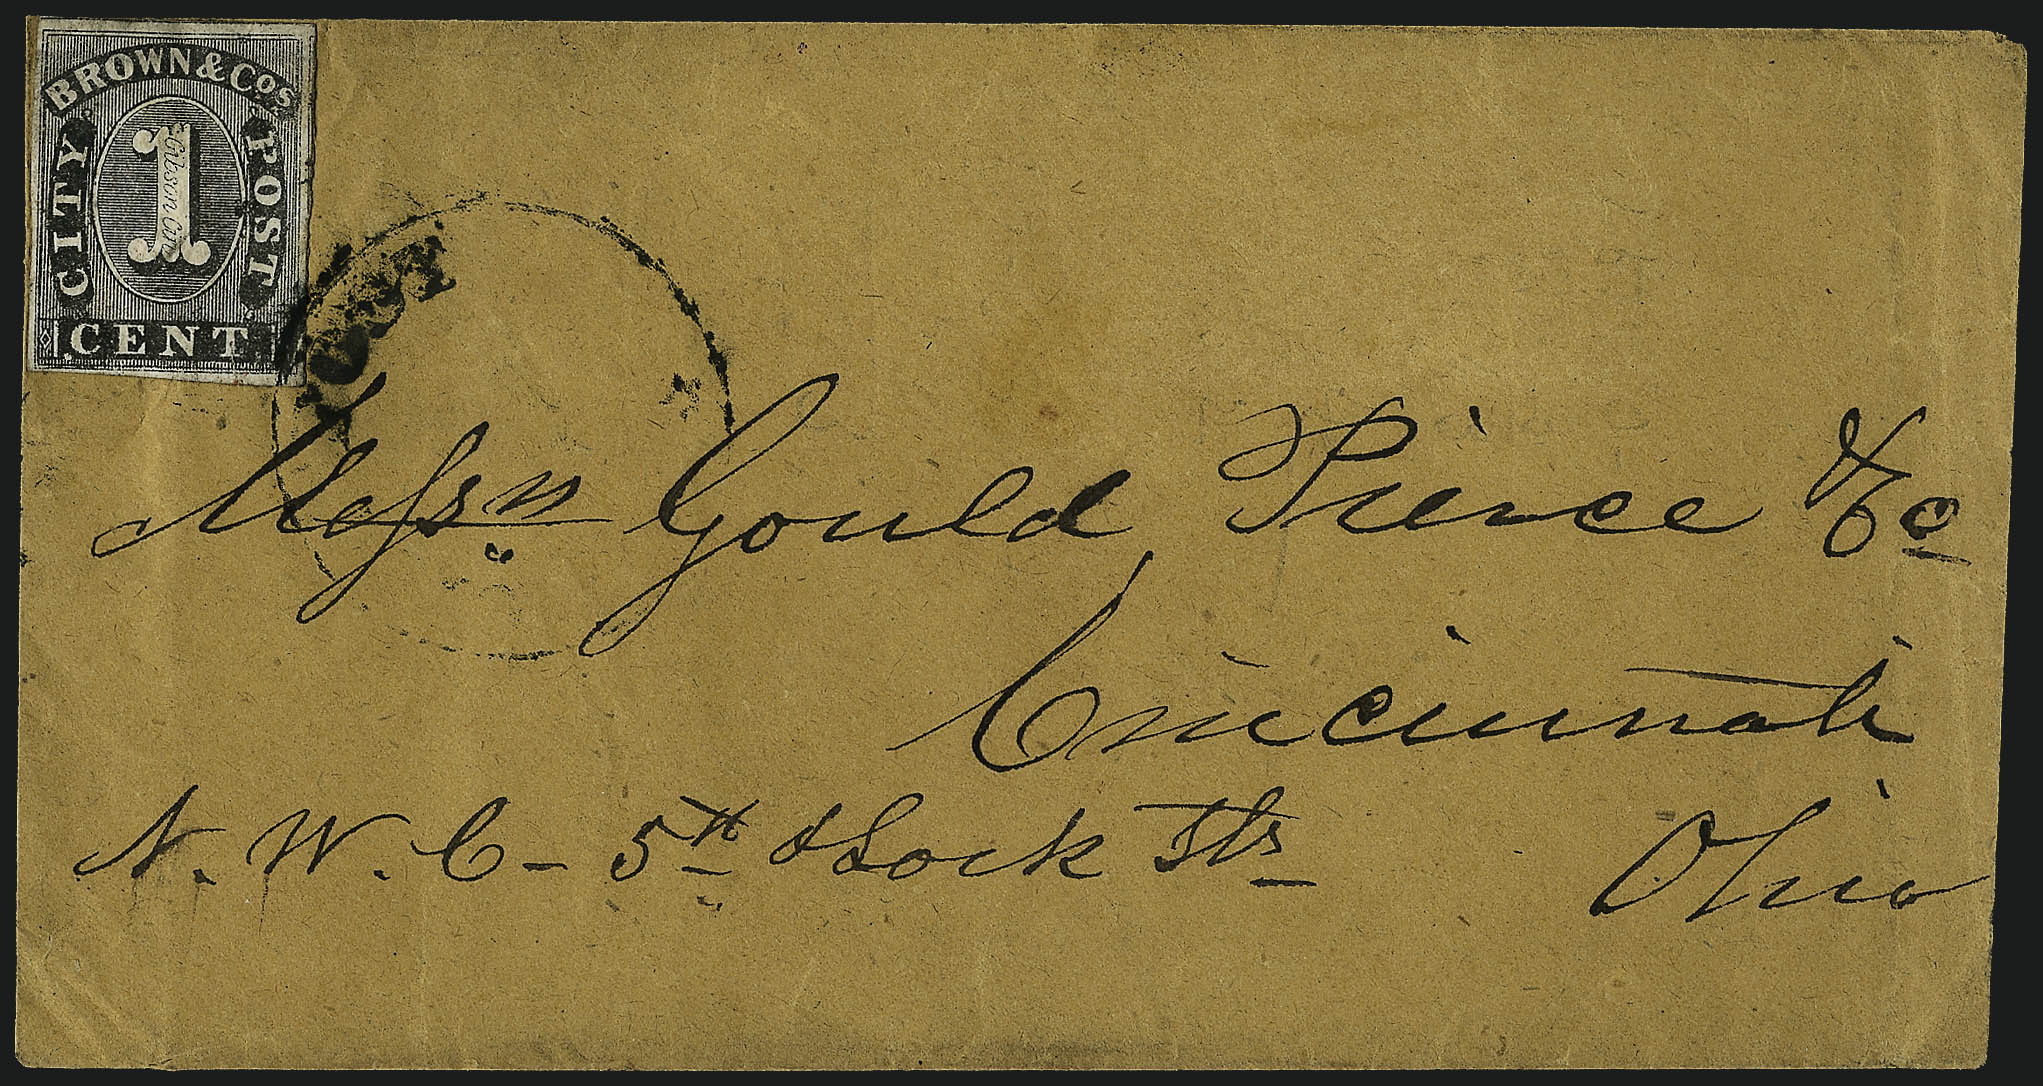 BROWN & Cos
CITY POST
1
Gibson Cin
CENT
Messrs Gould, Pierce & Co
Cincinnati
N. W. C - 5th & Lock Sts
Ohio